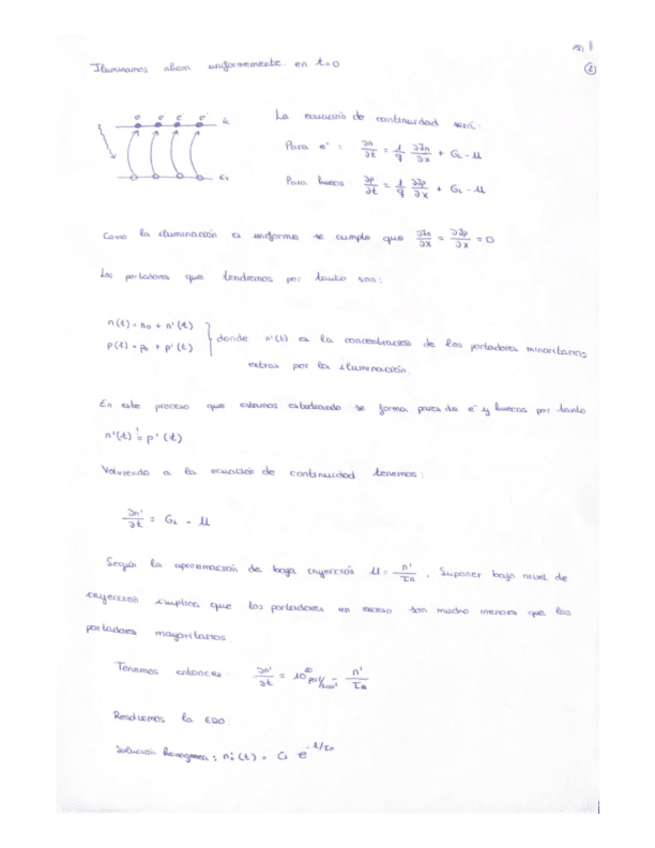 ②
Iluminamos ahora uniformemente en t=0
La ecuación de continuidad será:
e⁻ e⁻ e⁻ e⁻ Ec
Para e⁻ : ∂n/∂t = 1/q ∂Jn/∂x + GL - U
Ev
Para huecos ∂p/∂t = 1/q ∂Jp/∂x + GL - U
Como la iluminación es uniforme se cumple que ∂Jn/∂x = ∂Jp/∂x = 0
Los portadores que tendremos por tanto son:
n(t) = n₀ + n'(t)
p(t) = p₀ + p'(t)
donde n'(t) es la concentración de los portadores minoritarios
extras por la iluminación.
En este proceso que estamos estudiando se forma pares de e⁻ y huecos por tanto
n'(t) = p'(t)
Volviendo a la ecuación de continuidad tenemos:
∂n'/∂t = GL - U
Según la aproximación de baja inyección U = n'/τn . Suponer bajo nivel de
inyección implica que los portadores en exceso son mucho menores que los
portadores mayoritarios.
Tenemos entonces ∂n'/∂t = - n'/τn
Resolvemos la EDO:
Solución homogenea : (t) = C₁ e^(-t/τn)